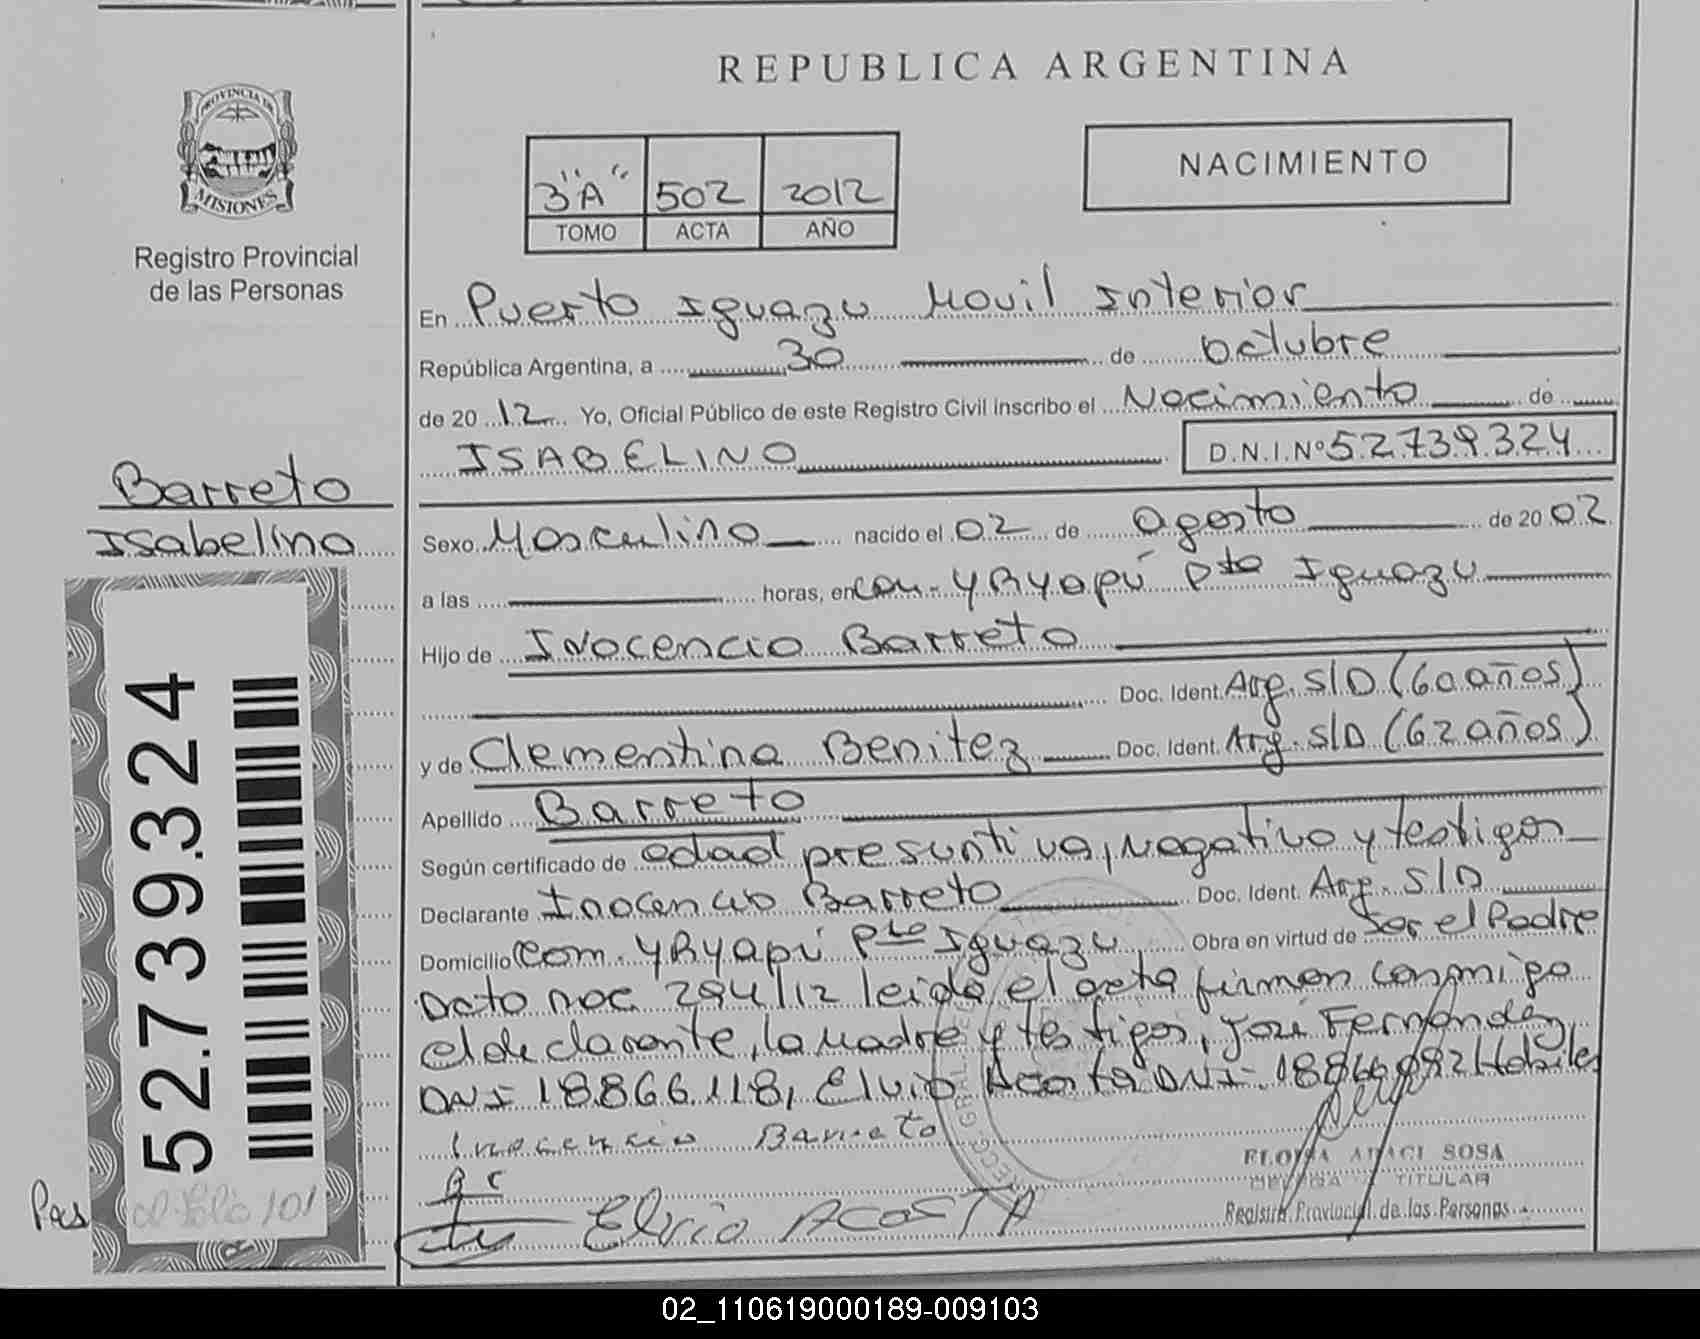 REPUBLICA ARGENTINA
PROVINCIA DE
MISIONES
Registro Provincial
de las Personas
3"A" 502 2012
TOMO ACTA AÑO
NACIMIENTO
En Puerto Iguazu Movil Interior
República Argentina, a 30 de octubre
de 20 12 Yo, Oficial Público de este Registro Civil inscribo el Nacimiento de
ISABELINO D.N.I.Nº 52.739.324
Barreto
Isabelino
Sexo Masculino nacido el 02 de agosto de 20 02
a las horas, en Com. yRyapú Pto Iguazu
Hijo de Inocencio Barreto
Doc. Ident. Arg. S/D (60 años)
y de Clementina Benitez Doc. Ident. Arg. S/D (62 años)
Apellido Barreto
Según certificado de edad presuntiva, negativo y testigos
Declarante Inocencio Barreto Doc. Ident. Arg. S/D
Domicilio Com. yRyapú Pto Iguazu Obra en virtud de Ser el Padre
Dcto nac 294/12 leida el acta firman conmigo
el declarante, la Madre y testigos, José Fernandez
DNI 18.866.118, Elvio Acosta DNI 18866092 Habiles
Inocencio Barreto
B c
Elvio ACOSTA
SOSA
TITULAR
Registro Provincial de las Personas
52.739.324
Pas al folio 101
02_110619000189-009103